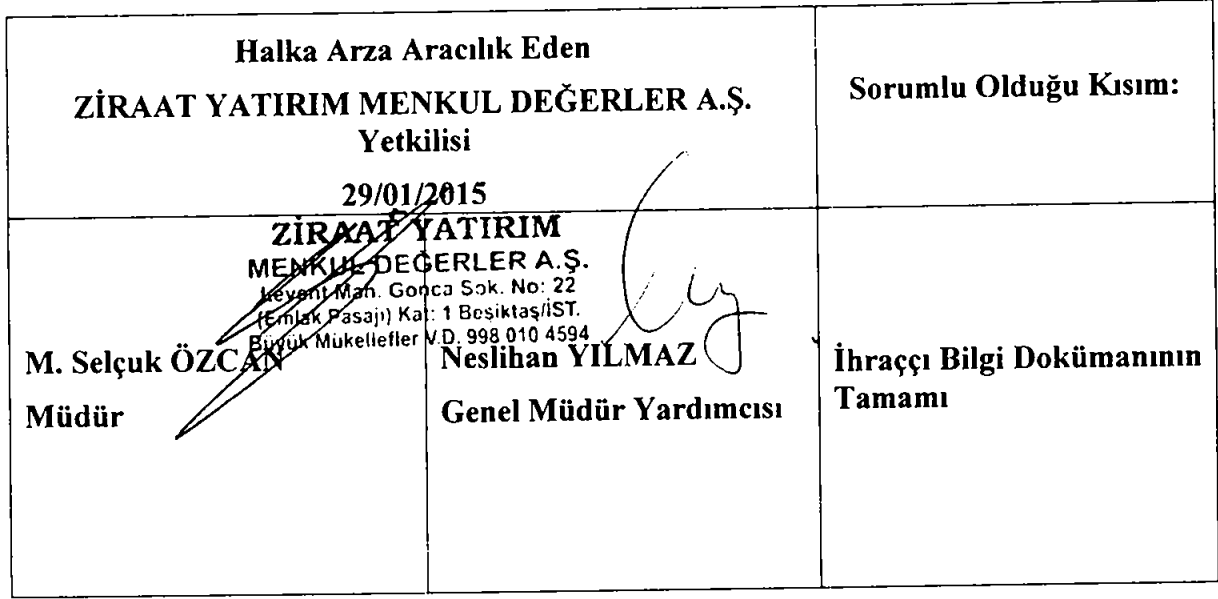 Halka Arza Aracılık Eden
ZİRAAT YATIRIM MENKUL DEĞERLER A.Ş.
Yetkilisi
29/01/2015
Sorumlu Olduğu Kısım:
ZİRAAT YATIRIM
MENKUL DEĞERLER A.Ş.
Levent Mah. Gonca Sok. No: 22
(Emlak Pasajı) Kat: 1 Beşiktaş/İST.
Büyük Mükellefler V.D. 998 010 4594
M. Selçuk ÖZCAN
Müdür
Neslihan YILMAZ
Genel Müdür Yardımcısı
İhraççı Bilgi Dokümanının
Tamamı